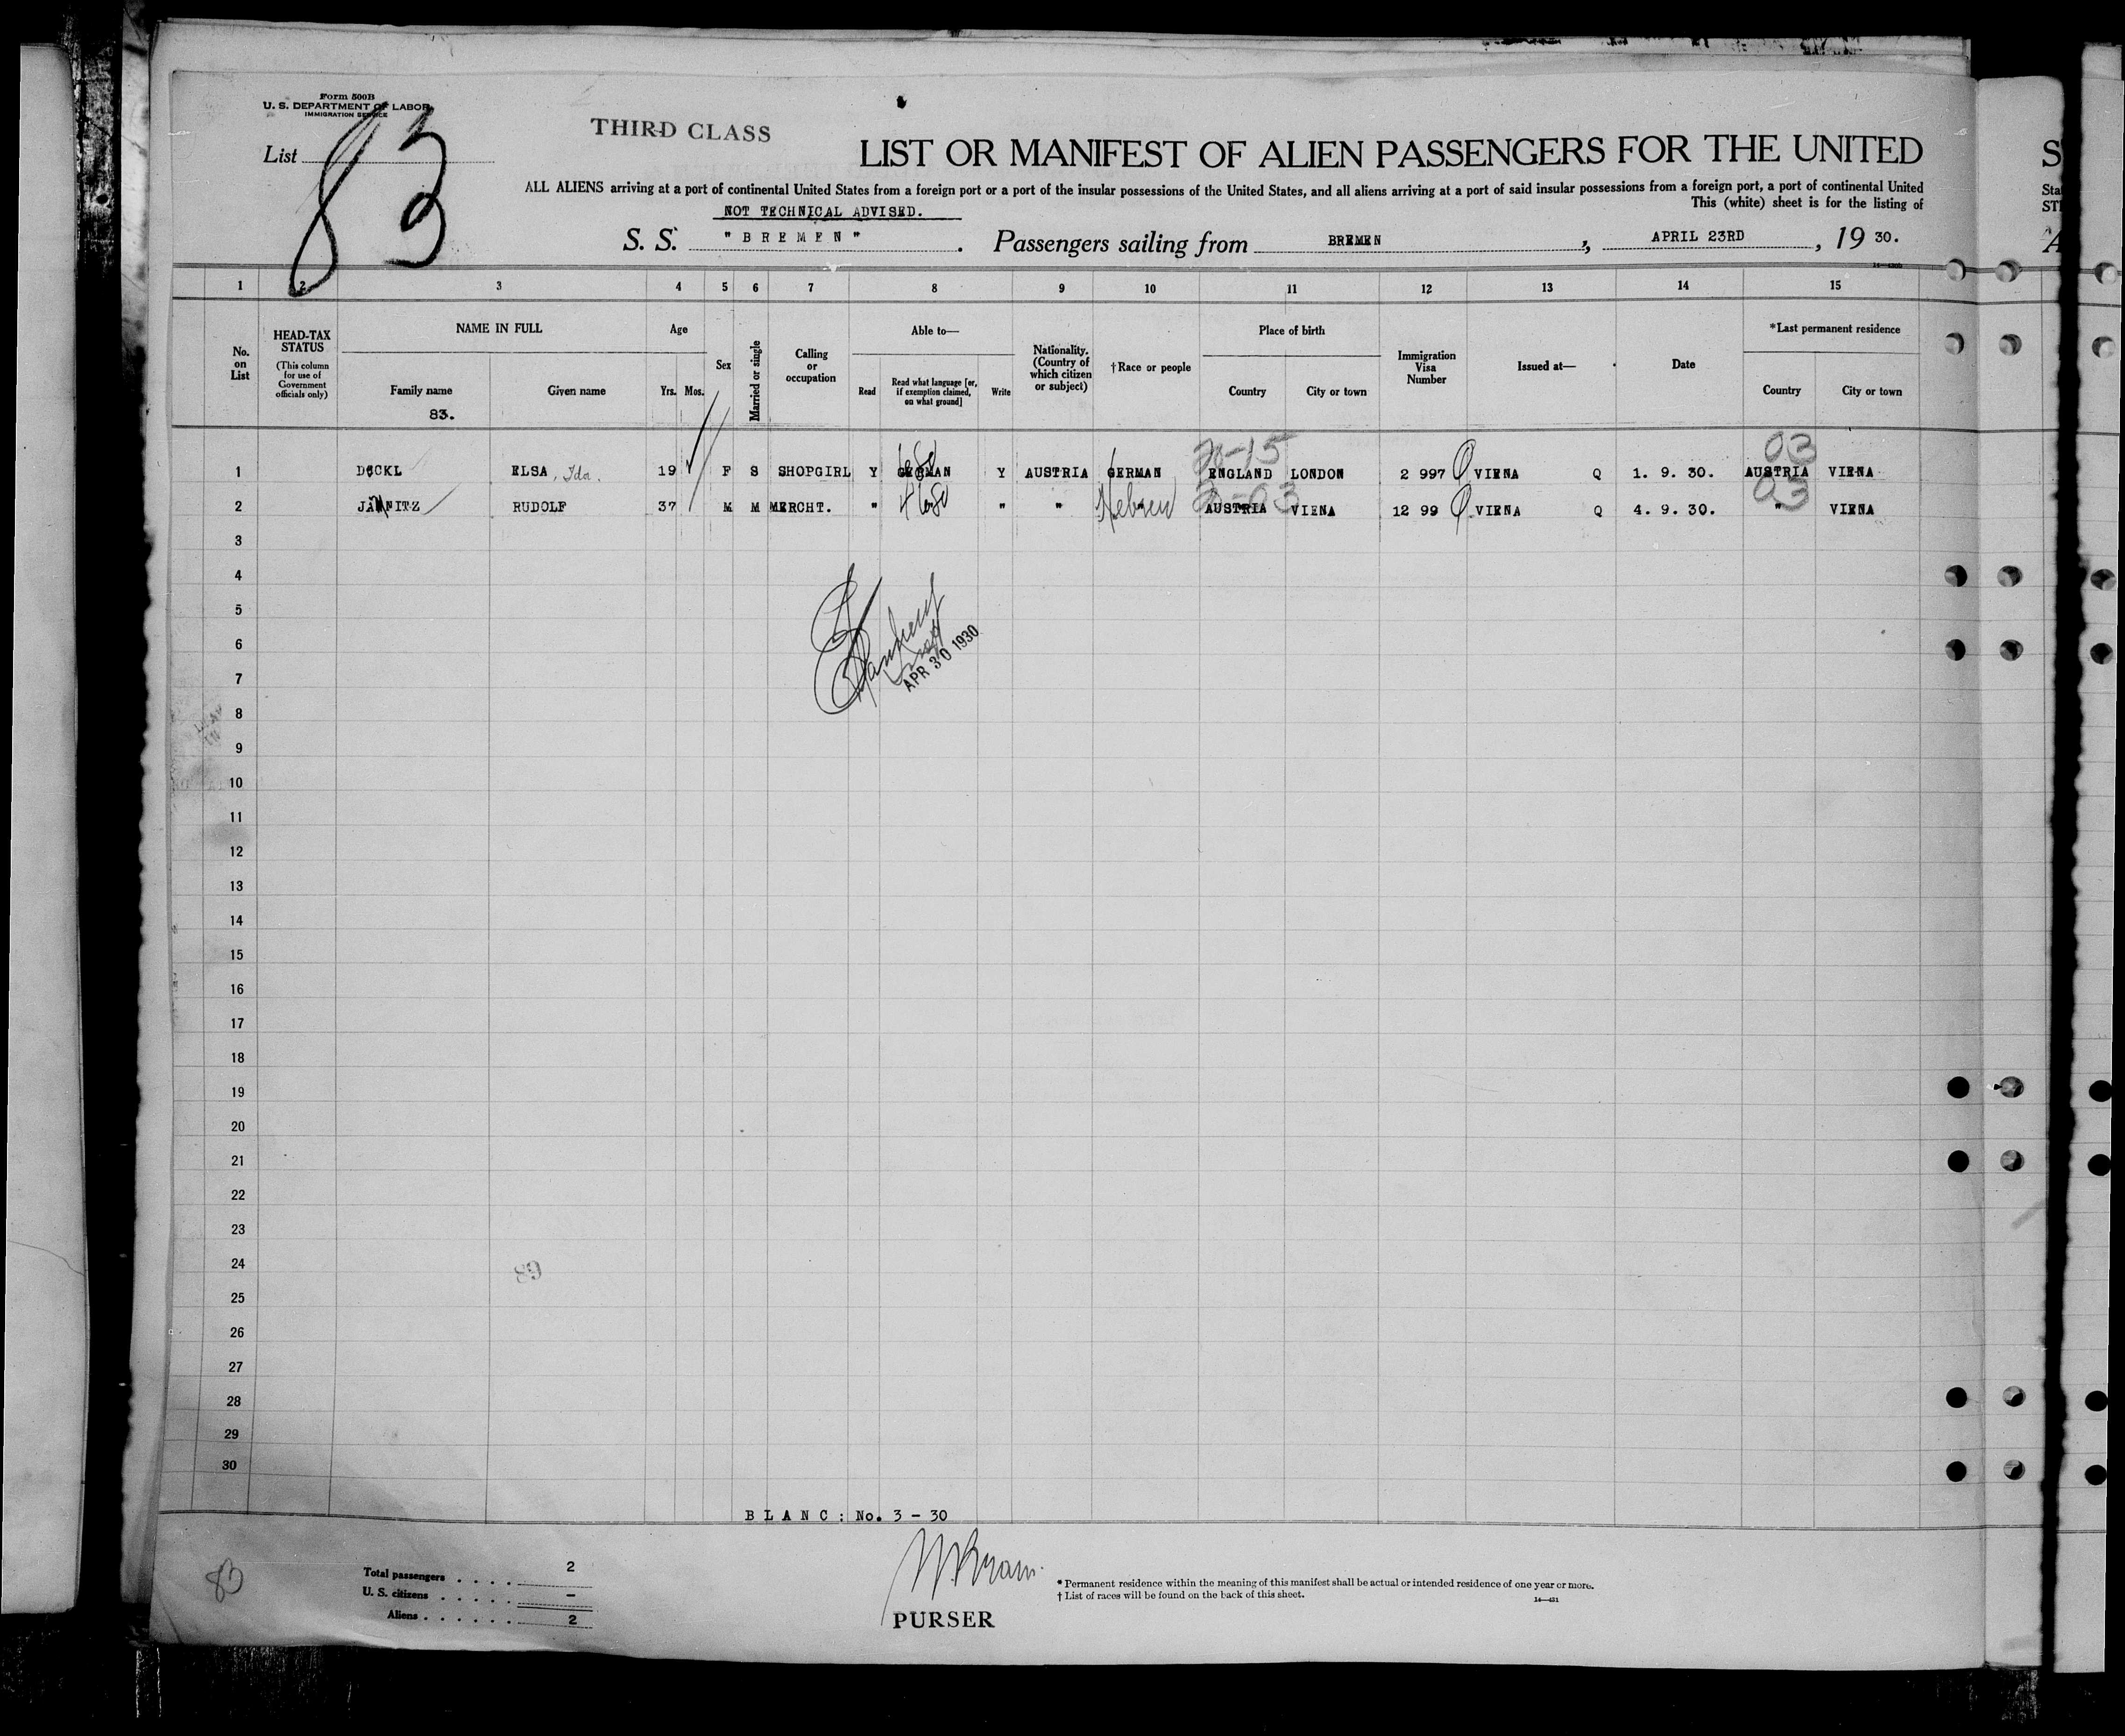 Form 500B
U. S. DEPARTMENT OF LABOR
IMMIGRATION SERVICE
List 83
THIRD CLASS
LIST OR MANIFEST OF ALIEN PASSENGERS FOR THE UNITED
ALL ALIENS arriving at a port of continental United States from a foreign port or a port of the insular possessions of the United States, and all aliens arriving at a port of said insular possessions from a foreign port, a port of continental United
This (white) sheet is for the listing of
NOT TECHNICAL ADVISED.
S. S. "BREMEN". Passengers sailing from BREMEN, APRIL 23RD, 19 30.
1 2 3 4 5 6 7 8 9 10 11 12 13 14 15
No. on List
HEAD-TAX STATUS (This column for use of Government officials only)
NAME IN FULL
Family name
Given name
83.
Age
Yrs. Mos.
Sex
Married or single
Calling or occupation
Able to—
Read
Read what language [or, if exemption claimed, on what ground]
Write
Nationality. (Country of which citizen or subject)
†Race or people
Place of birth
Country
City or town
Immigration Visa Number
Issued at—
Date
*Last permanent residence
Country
City or town
20-15 03
1 ELSA, Ida. 19 F S SHOPGIRL Y GERMAN Y AUSTRIA GERMAN ENGLAND LONDON 2 997 VIENA Q 1. 9. 30. AUSTRIA VIENA
03
2 RUDOLF 37 M M MERCHT. " " " Hebrew AUSTRIA VIENA 12 99 VIENA Q 4. 9. 30. " VIENA
3
4
5
6
7
8
9
10
11
12
13
14
15
16
17
18
19
20
21
22
23
24
25
26
27
28
29
30
APR 30 1930
89
BLANC: No. 3 - 30
83
Total passengers . . . . 2
U. S. citizens . . . . . –
Aliens . . . . . . 2
PURSER
* Permanent residence within the meaning of this manifest shall be actual or intended residence of one year or more.
† List of races will be found on the back of this sheet.
14—431